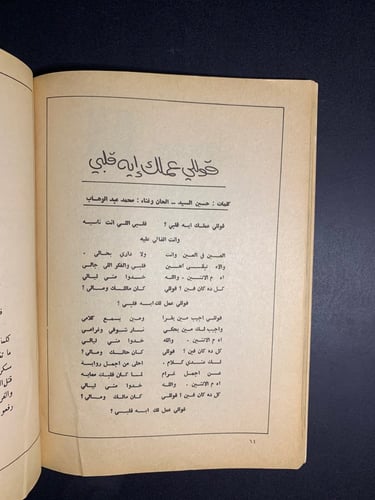 قوللي عملك إيه قلبي
كلمات : حسين السيد – الحان وغناء : محمد عبد الوهاب
قوللي عملك ايه قلبي ؟ قلبي اللي انت ناسيه
وانت الغالي عليه
العين في العين وانت ولا داري بحالي .
والاه تبقى اهين قلبي والفكر اللي جالي
اه م الاتنين . والله خدوا مني ليالي
كل ده كان فين ؟ قوللي كان مالك ومالي ؟
قوللي عمل لك ايه قلبي ؟
قوللي اجيب مين يقرا ومين يسمع كلامي
واجيب لك مين يحكي نار شوقي وغرامي
اه م الاتنين . والله خدوا مني ليالي
كل ده كان فين ؟ قوللي كان حالك ومالي ؟
لك عندي كلام . احلى من اجمل رواية
عن اجمل غرام لما كان قلبك معايه
اه م الاتنين . والله خدوا مني ليالي
كل ده كان فين ؟ قوللي كان مالك ومالي ؟
قوللي عمل لك ايه قلبي ؟
٦٤